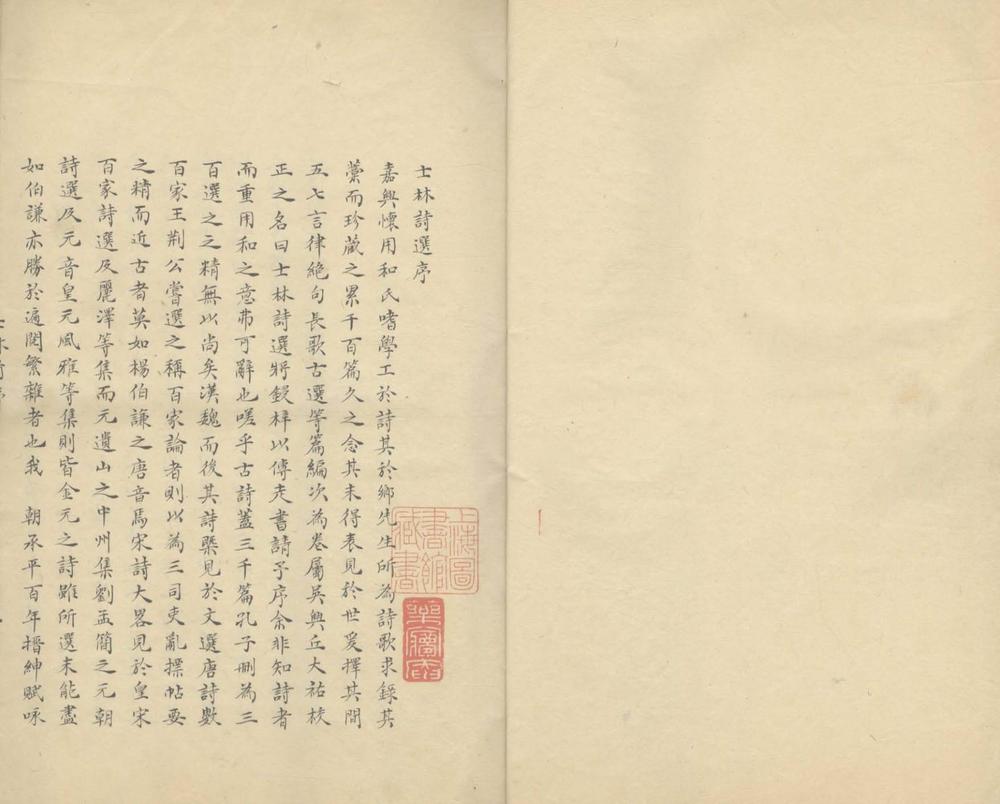 士林詩選序
嘉興懷用和氏嗜學工於詩其於鄉先生所為詩歌求錄其
藁而珍藏之累千百篇久之念其未得表見於世爰擇其間
五七言律絕句長歌古選等篇編次為卷屬吳興丘大祐校
正之名曰士林詩選將鋟梓以傳走書請予序余非知詩者
而重用和之意弗可辭也嗟乎古詩蓋三千篇孔子刪為三
百選之之精無以尚矣漢魏而後其詩槩見於文選唐詩數
百家王荆公嘗選之稱百家論者則以為三司吏亂摽帖耍
之精而近古者莫如楊伯謙之唐音焉宋詩大畧見於皇宋
百家詩選及麗澤等集而元遺山之中州集劉孟簡之元朝
詩選及元音皇元風雅等集則皆金元之詩雖所選未能盡
如伯謙亦勝於遍閱繁雜者也我　朝承平百年搢紳賦咏
上海圖書館藏書